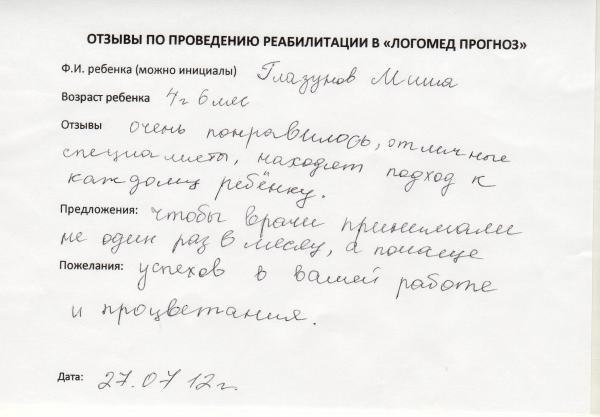 ОТЗЫВЫ ПО ПРОВЕДЕНИЮ РЕАБИЛИТАЦИИ В «ЛОГОМЕД ПРОГНОЗ»
Ф.И. ребенка (можно инициалы) Глазунов Миша
Возраст ребенка 4г 6 мес
Отзывы очень понравилось, отличные
специалисты, находят подход к
каждому ребёнку.
Предложения: чтобы врачи принимали
не один раз в месяц, а почаще
Пожелания: успехов в вашей работе
и процветания.
Дата: 27.07 12г.